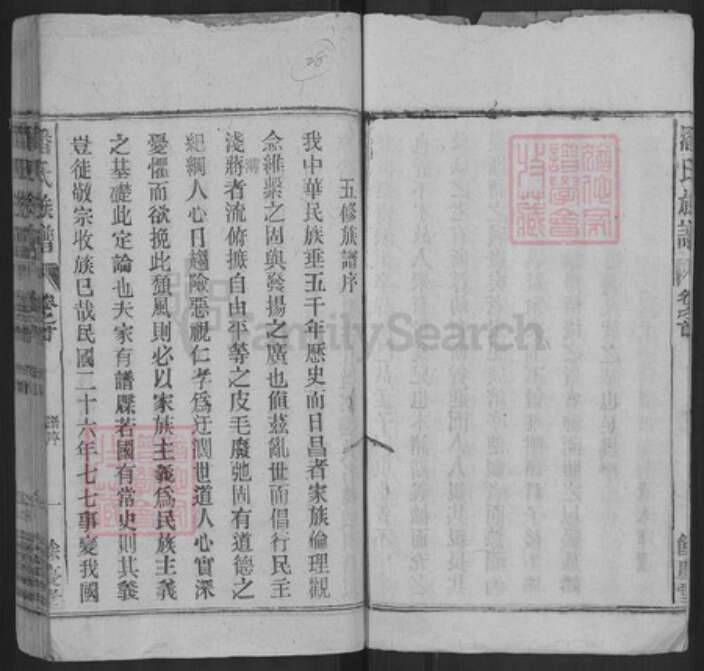 五修族譜序
我中華民族垂五千年歷史而日昌者家族倫理觀
念維繫之固與發揚之廣也値茲亂世而倡行民主
淺薄者流俯摭自由平等之皮毛廢弛固有道德之
紀綱人心日趨險惡視仁孝爲迂濶世道人心實深
憂懼而欲挽此頹風則必以家族主義爲民族主義
之基礎此定論也夫家有譜牒若國有常史則其義
豈徒敬宗收族已哉民國二十六年七七事變我國
潘氏族譜
卷之首
譜序
一
餘慶堂
潘氏族譜
卷之首
餘慶堂
28
FamilySearch